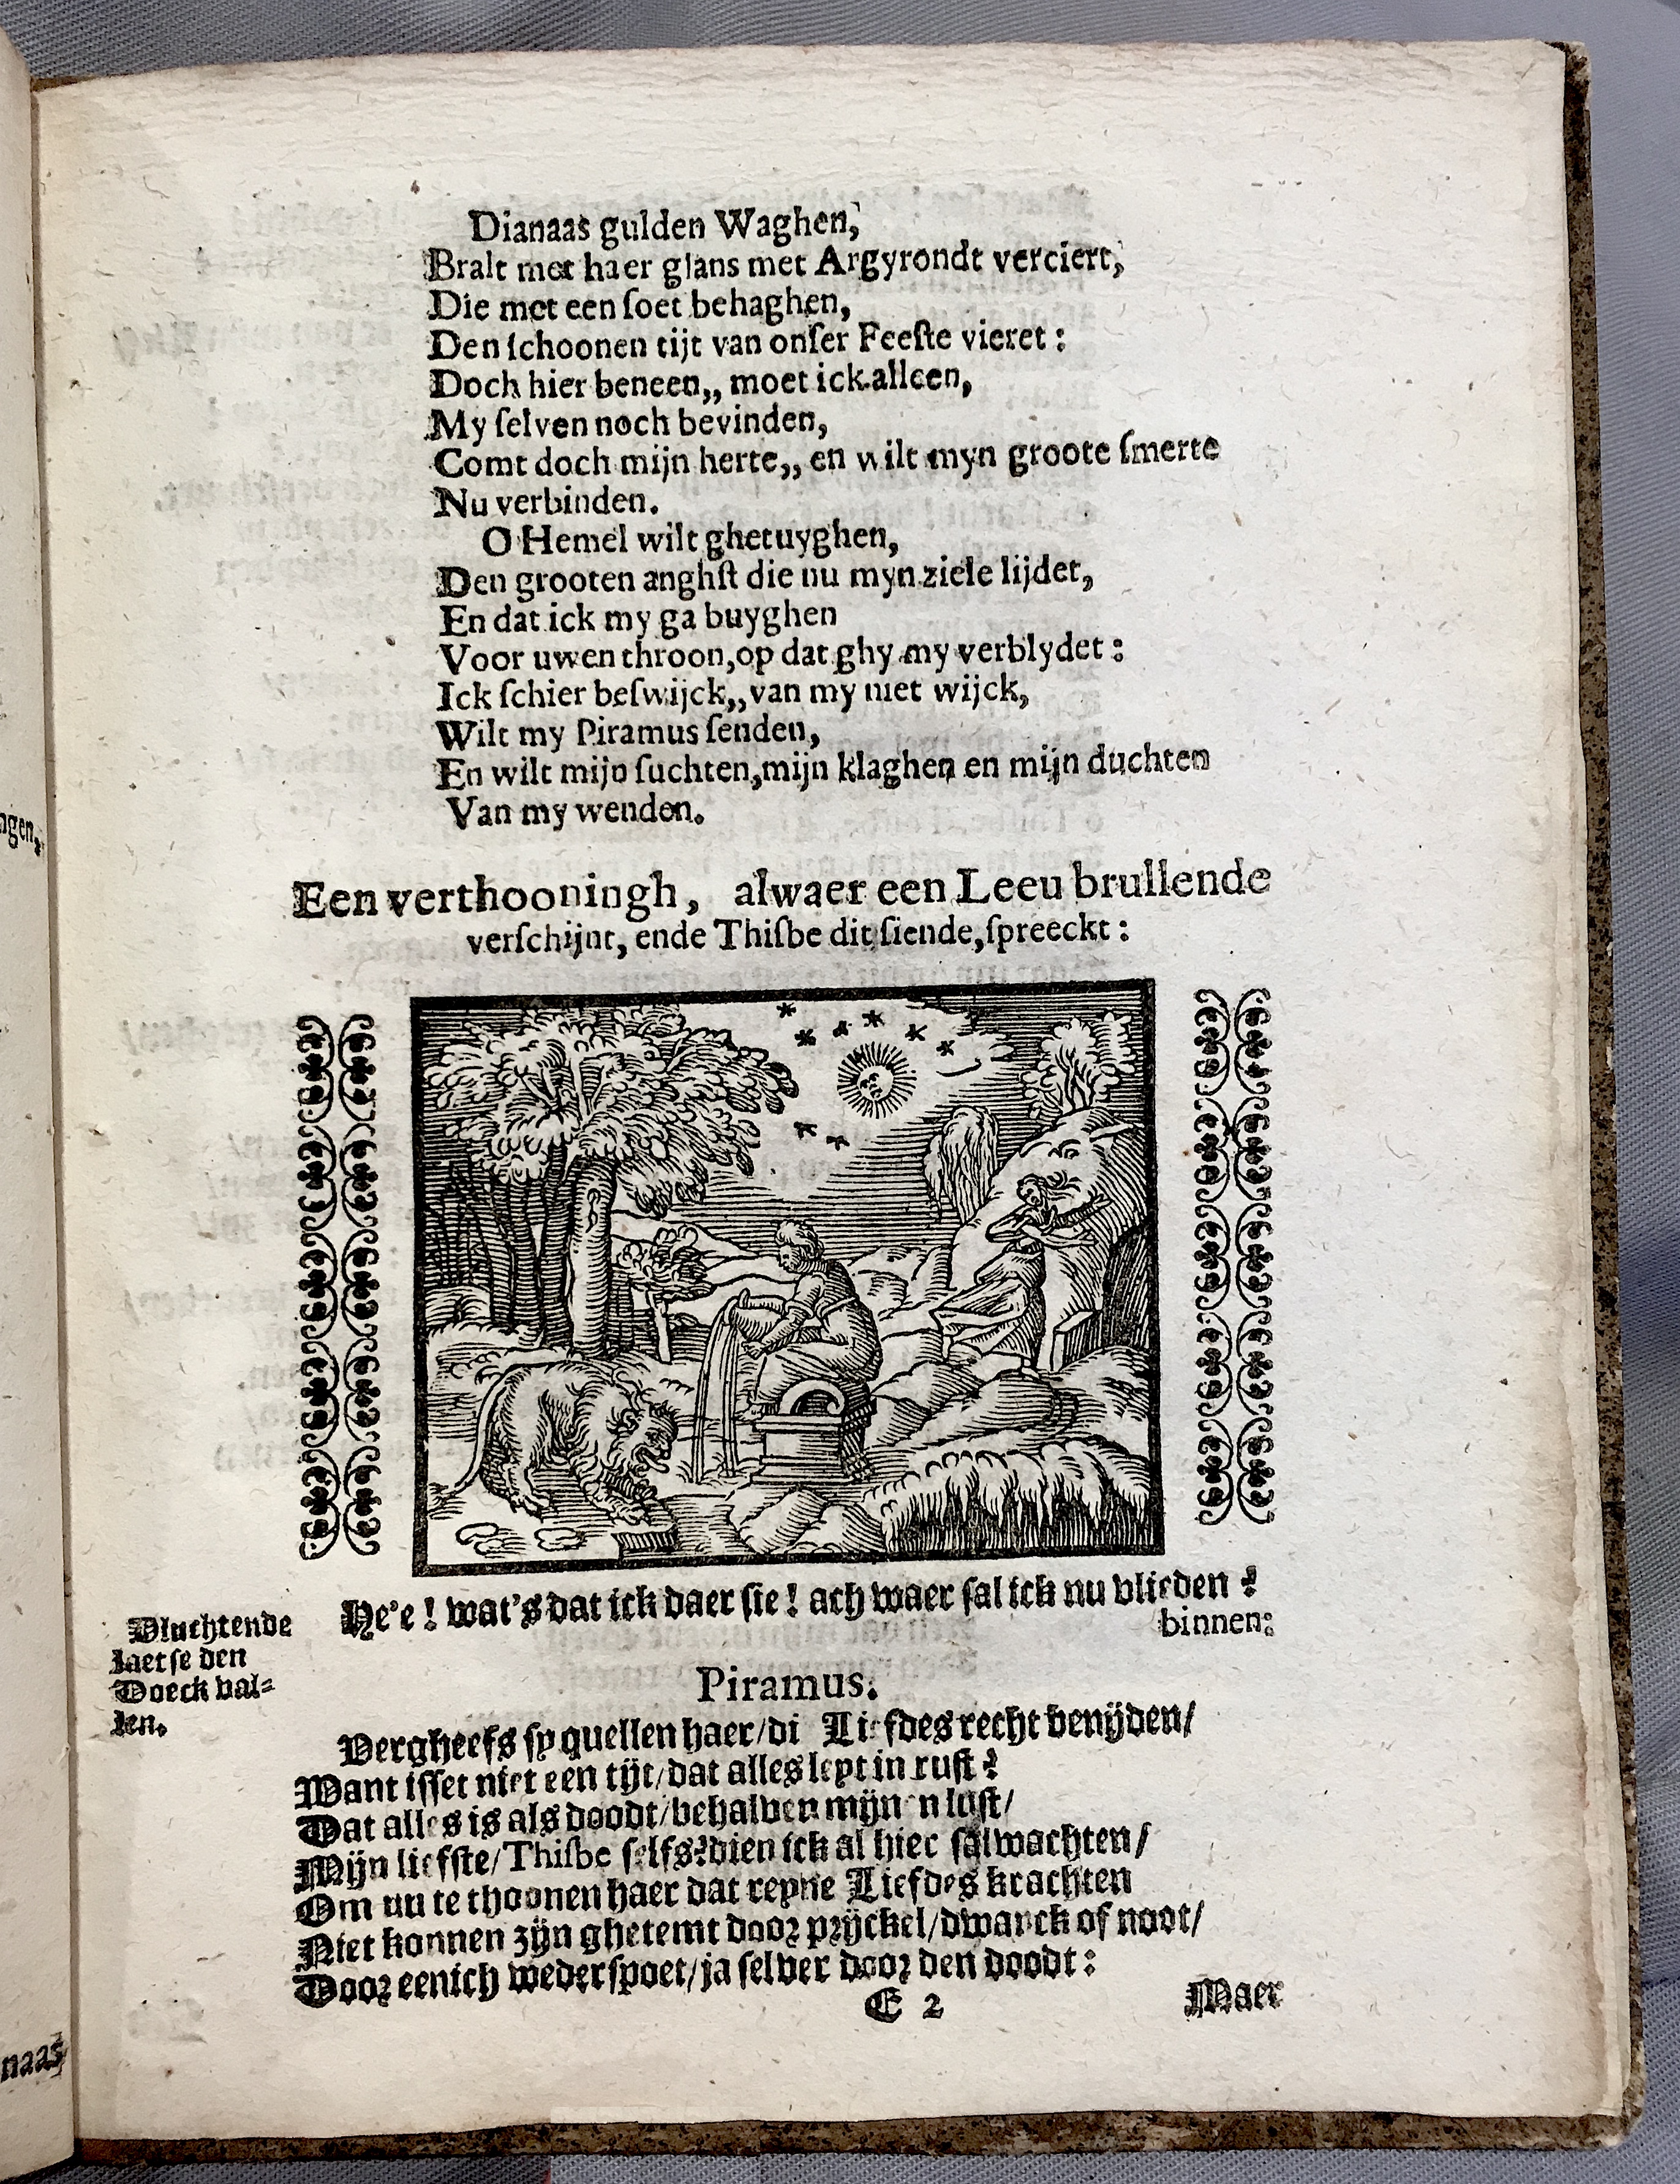 ngen,
naas
Dianaas gulden Waghen,
Bralt met haer glans met Argyrondt verciert,
Die met een ſoet behaghen,
Den ſchoonen tijt van onſer Feeſte vieret :
Doch hier beneen,, moet ick alleen,
My ſelven noch bevinden,
Comt doch mijn herte,, en wilt myn groote ſmerte
Nu verbinden.
O Hemel wilt ghetuyghen,
Den grooten anghſt die nu myn ziele lijdet,
En dat ick my ga buyghen
Voor uwen throon, op dat ghy my verblydet :
Ick ſchier beſwijck,, van my niet wijck,
Wilt my Piramus ſenden,
En wilt mijn ſuchten, mijn klaghen en mijn duchten
Van my wenden.
Een verthooningh, alwaer een Leeu brullende
verſchijnt, ende Thiſbe dit ſiende, ſpreeckt :
He'e ! wat's dat ick daer ſie ! ach waer ſal ick nu vlieden ?
binnen:
Vluchtende
laetſe den
Doeck val-
len.
Piramus.
Vergheefs ſy quellen haer/ di Liefdes recht benijden/
Want iſſet niet een tijt/ dat alles leyt in ruſt ?
Dat alles is als doodt/ behalven mijn n luſt/
Mijn liefſte/ Thiſbe ſelfs? dien ick al hier ſal wachten/
Om nu te thoonen haer dat reyne Liefdes krachten
Niet konnen zijn ghetemt door prijckel/ dwanck of noot/
Door eenich wederſpoet/ ja ſelver door den doodt :
E 2
Maer